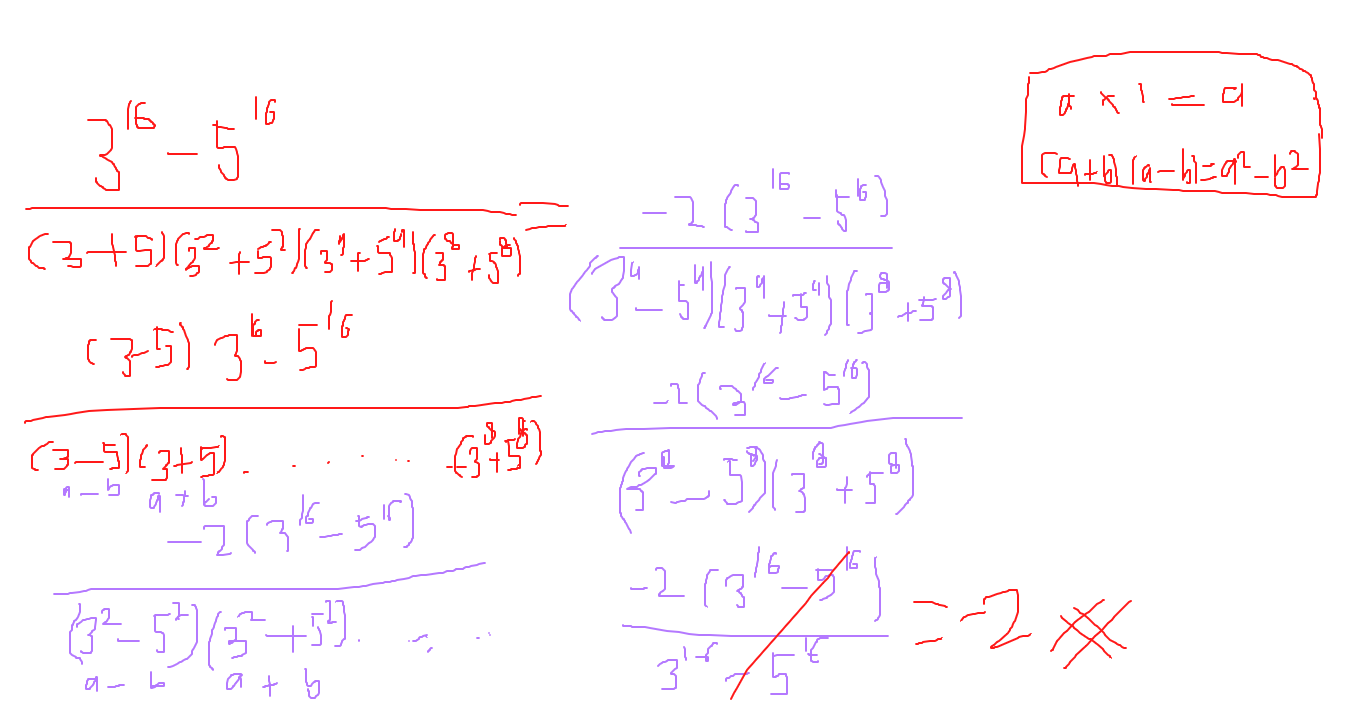 3^16 - 5^16
(3+5)(3^2+5^2)(3^4+5^4)(3^8+5^8) =
(3-5) 3^16 - 5^16
(3-5)(3+5). . . . . . . (3^8+5^8)
a-b a+b
-2(3^16-5^16)
(3^2-5^2)(3^2+5^2). . . . .
a-b a+b
-2(3^16-5^16)
(3^4-5^4)(3^4+5^4)(3^8+5^8)
-2(3^16-5^16)
(3^8-5^8)(3^8+5^8)
-2(3^16-5^16)
3^16-5^16
= -2
a × 1 = a
(a+b)(a-b)=a^2-b^2